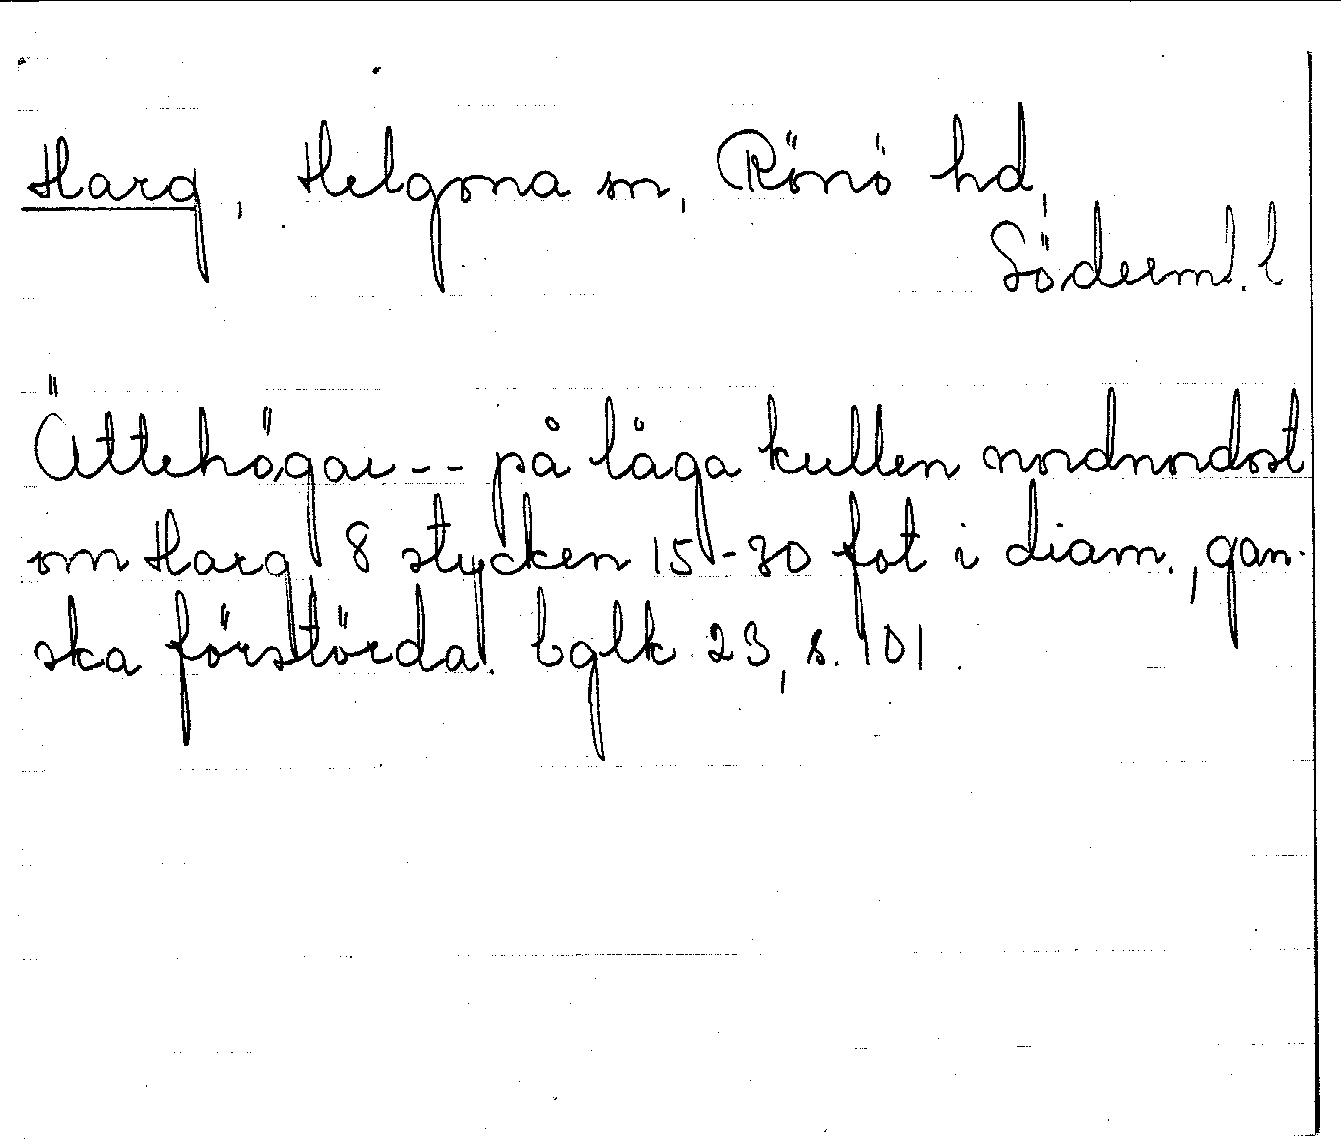 Harg, Helgona sn, Rönö hd,
Söderml. l
Ättehögar -- på låga kullen nordnordost
om Harg 8 stycken 15-30 fot i diam., gan-
ska förstörda. bglk 23, s. 101.